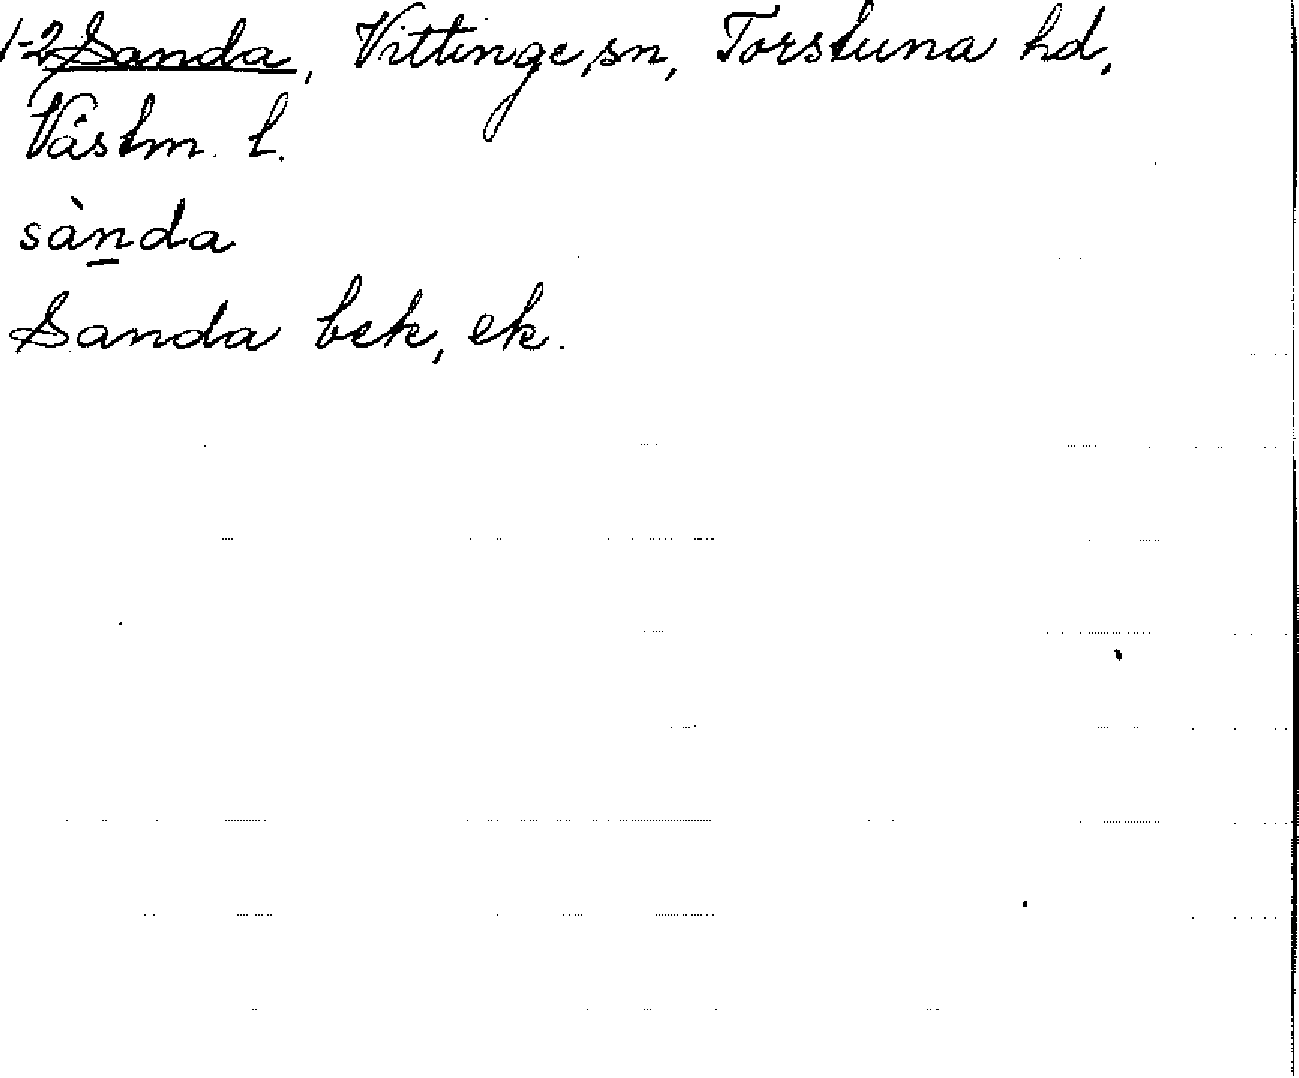 1-2 Sanda, Vittinge sn, Torstuna hd,
Västm. l.
sàn̲da
Sanda bek, ek.